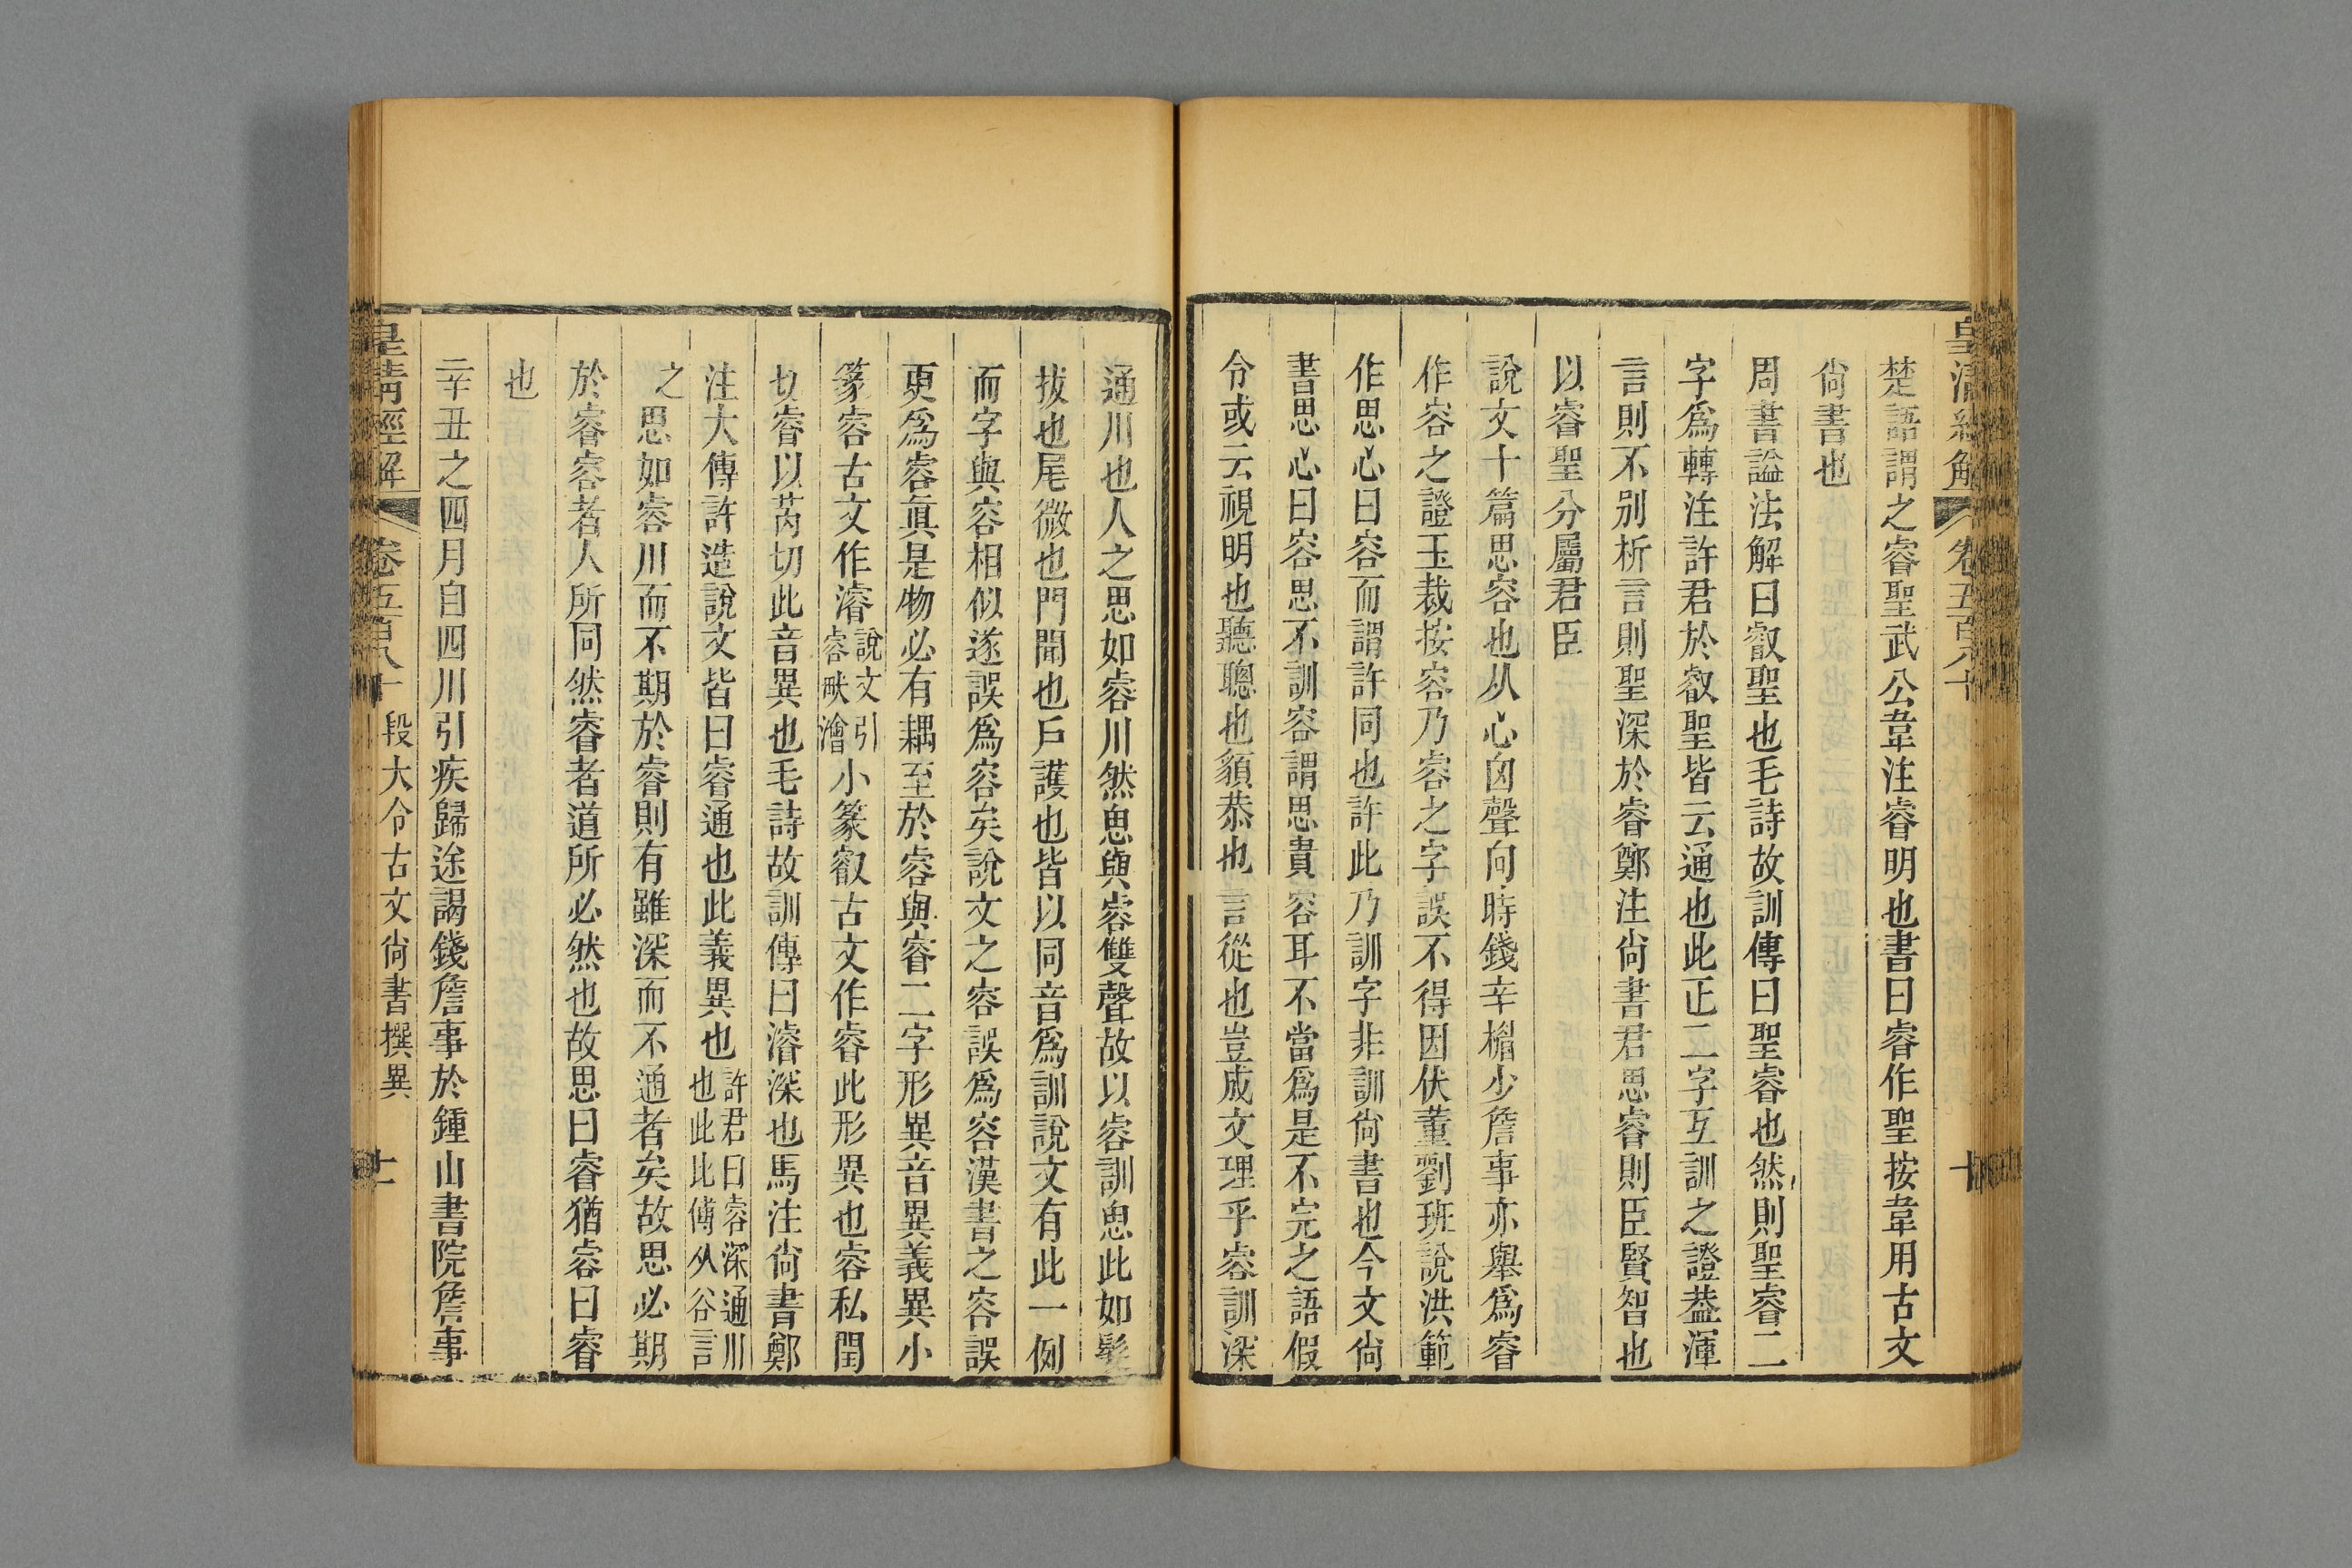 楚語謂之睿聖武公韋注睿明也書曰睿作聖按韋用古文
尙書也
周書諡法解曰叡聖也毛詩故訓傳曰聖睿也然則聖睿二
字爲轉注許君於叡聖皆云通也此正二字互訓之證葢渾
言則不别析言則聖深於睿鄭注尙書君思睿則臣賢智也
以睿聖分屬君臣
說文十篇思容也从心囟聲向時錢辛楣少詹事亦舉爲睿
作容之證玉裁按容乃㕡之字誤不得因伏董劉班說洪範
作思心曰容而謂許同也許此乃訓字非訓尙書也今文尙
書思心曰容思不訓容謂思貴容耳不當爲是不完之語假
令或云視明也聽聰也頟恭也言從也豈成文理乎㕡訓深
通川也人之思如㕡川然恖與㕡雙聲故以㕡訓恖此如髮
拔也尾微也門聞也戶護也皆以同音爲訓說文有此一例
而字與容相似遂誤爲容矣說文之㕡誤爲容漢書之容誤
更爲㕡眞是物必有耦至於㕡與睿二字形異音異義異小
篆㕡古文作濬
說文引
㕡畎澮
小篆叡古文作睿此形異也㕡私閏
切睿以芮切此音異也毛詩故訓傳曰濬深也馬注尙書鄭
注大傳許造說文皆曰睿通也此義異也
許君曰㕡深通川
也此此傅从谷言
之
思如㕡川而不期於睿則有雖深而不通者矣故思必期
於睿㕡者人所同然睿者道所必然也故思曰睿猶㕡曰睿
也
辛丑之四月自四川引疾歸途謁錢詹事於鍾山書院詹事
皇清經解
卷五百八十
段大令古文尙書撰異
十一